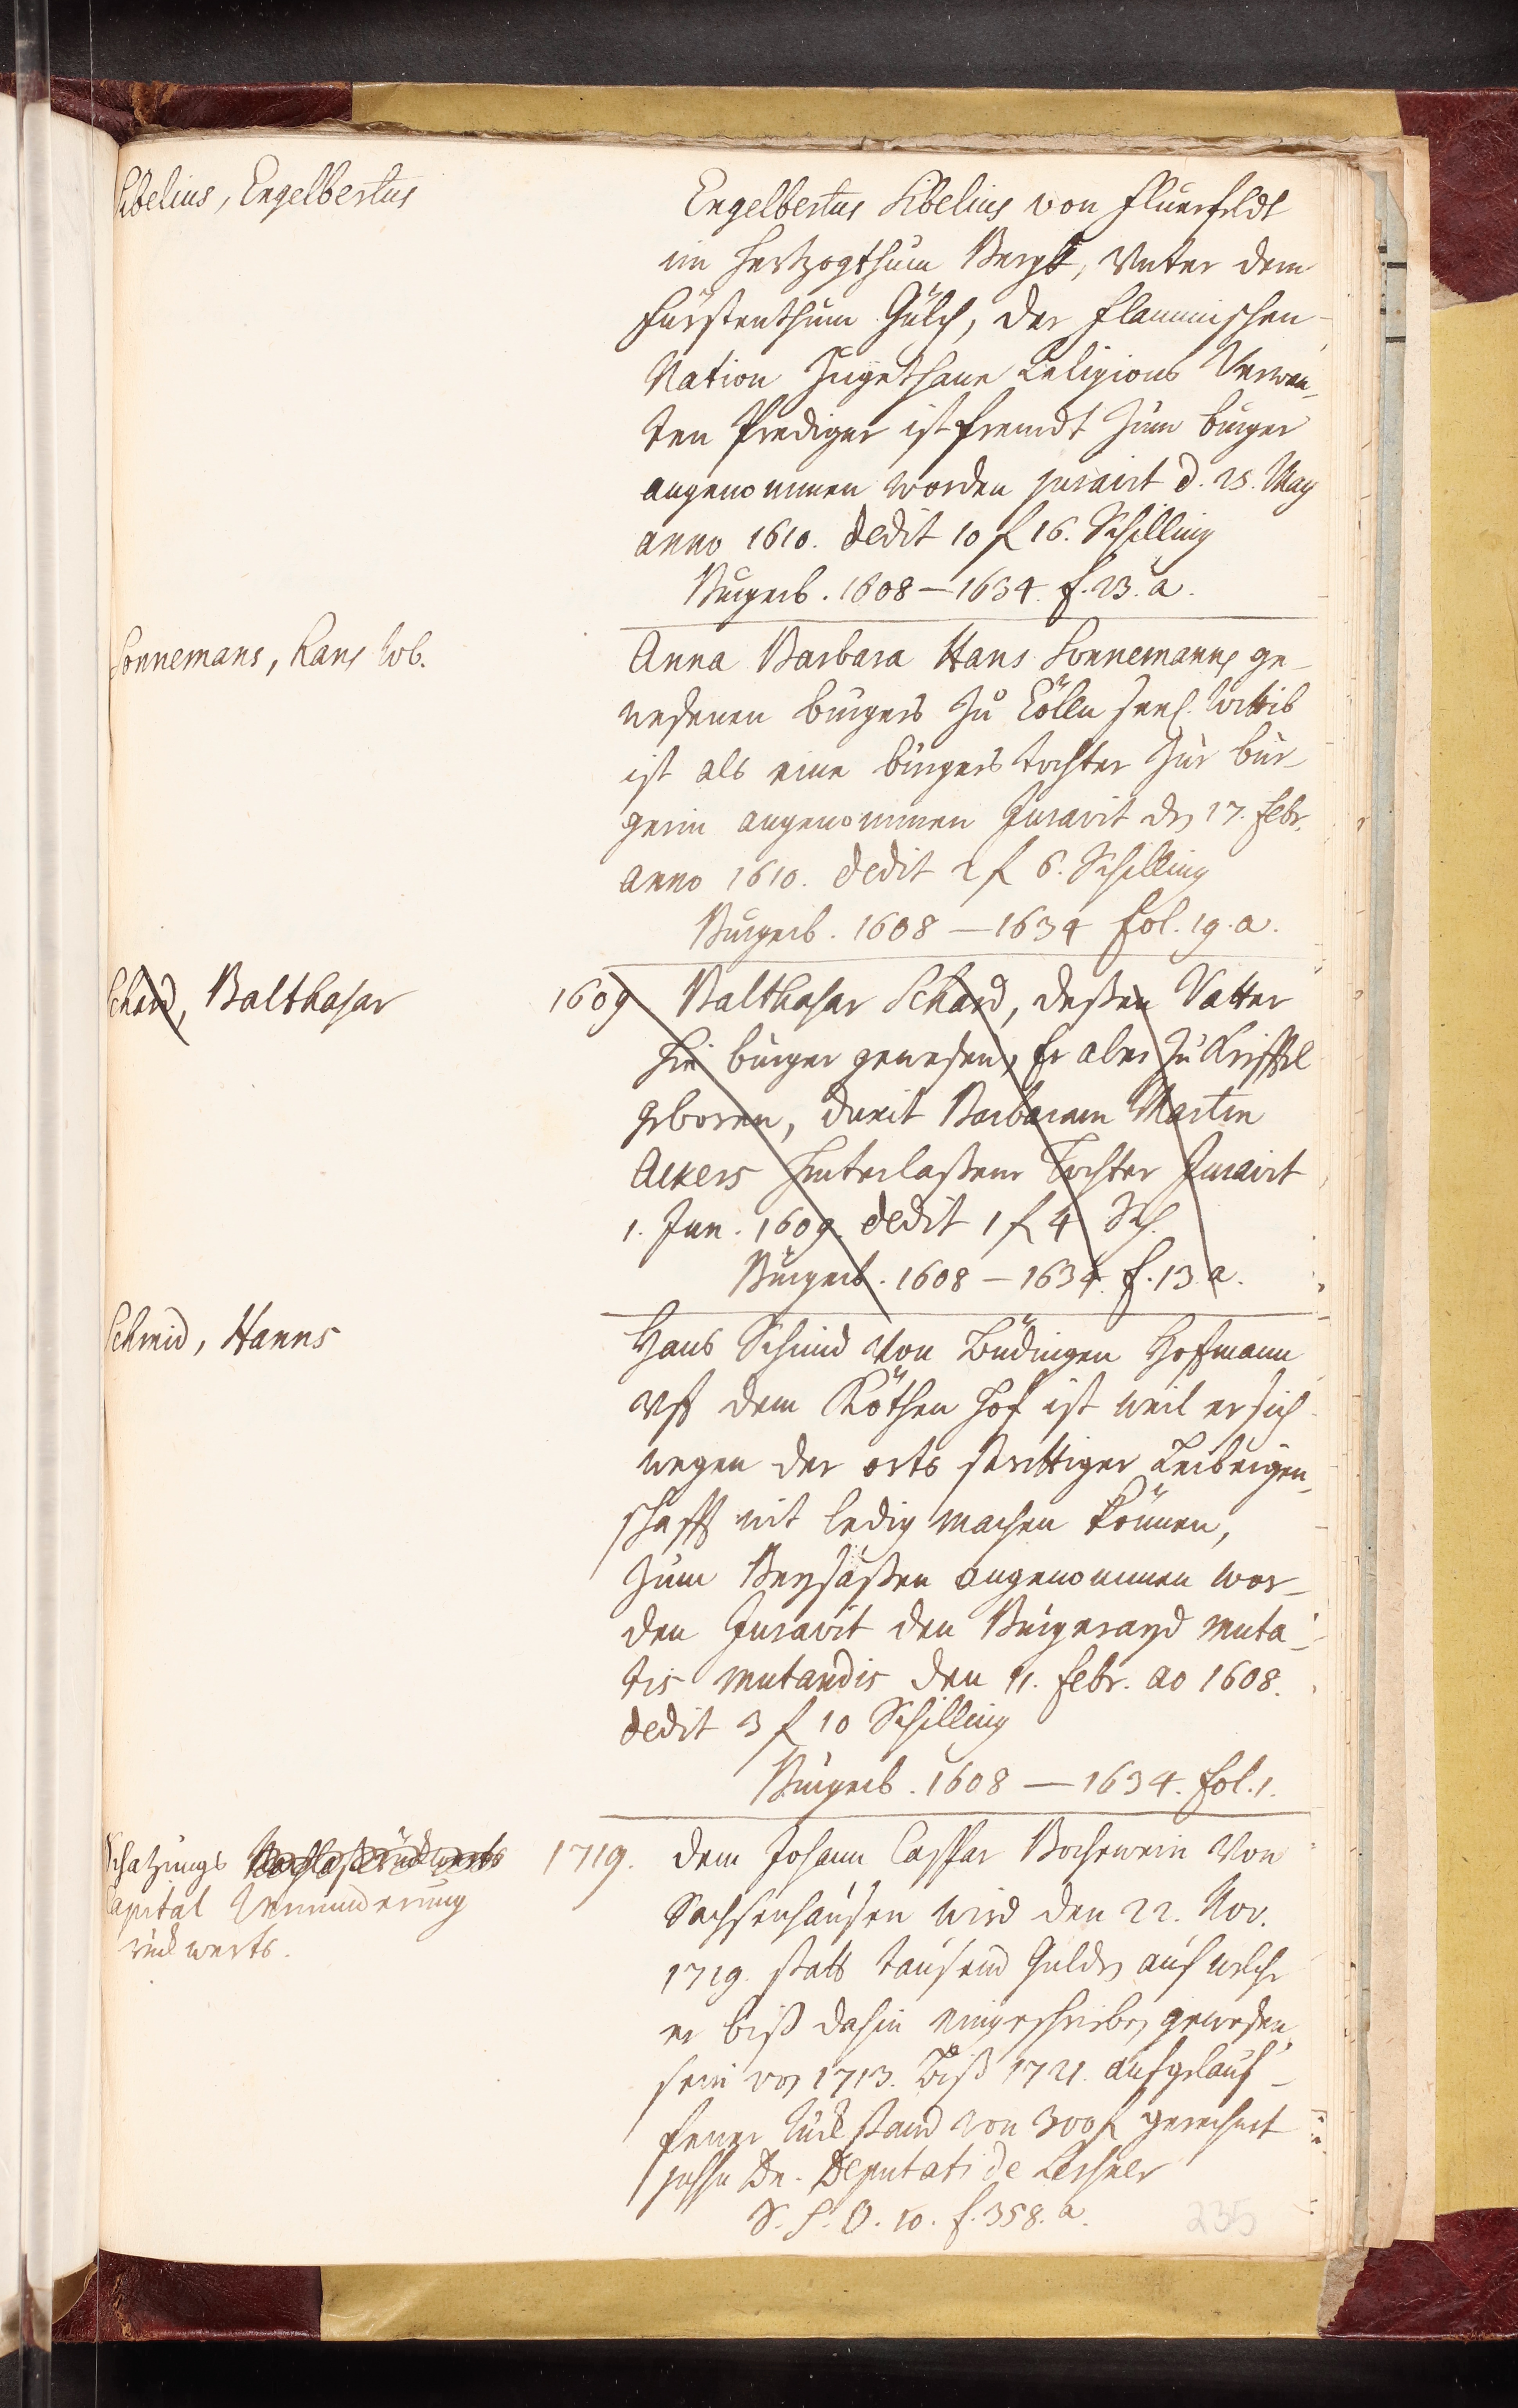 Sibelius, Engelbertus
Engelbertus Sibelius von Eluerfeldt
im Hertzogthum Bergk, Unter dem
Fürstenthum Gülch, der Flammischen
Nation Zugethane Religions Verwan-
ten Prediger ist fremdt Zum burger
angenommen worden juravit d. 25. May
anno 1610. dedit 10 f 16. Schilling
Burgerb. 1608 – 1634. f. 23. a.
Sonnemans, Hans Wb.
Anna Barbara Hans Sonnemanns ge-
wesenen burgers Zu Cölln seel. Wittib
ist als eine burgers tochter Zur bur-
gerin angenommen Juravit den 17. Febr.
anno 1610. dedit 2 f 6. Schilling
Burgerb. 1608 – 1634 fol. 19. a.
Schard, Balthasar
1609 Balthasar Schard, deßen Vatter
hie burger gewesen, Er aber Zu Krifftel
geboren, duxit Barbaram Martin
Ackers hinterlaßene Tochter Juravit
1. Jun. 1609. dedit 1 f 4 Sch.
Burgerb. 1608 – 1634. f. 13. a.
Schmid, Hanns
Hans Schmid Von Büdingen Hoffmann
uff dem Röthen Hof ist weil er sich
wegen der orts strittiger Leibeigen-
schafft nit ledig machen können,
Zum Beysäßen angenommen wor-
den Juravit den Burgerayd muta-
tis mutandis den 11. Febr. ao 1608.
dedit 3 f 10 Schilling
Burgerb. 1608 – 1634. fol. 1.
Schatzungs
Capital Verminderung
rückwerts.
1719. dem Johann Caspar Von
Sachsenhausen wird den 22. Nov.
1719. statt tausend Gulden auf welche
er biß dahin eingeschrieben gewesen
sein von 1713. biß 1721. aufgelauf-
fener Rückstand von 300 f gerechnet
jussu Dn. Deputati de Lersner
S. P. O. 10. f. 358. a.
235